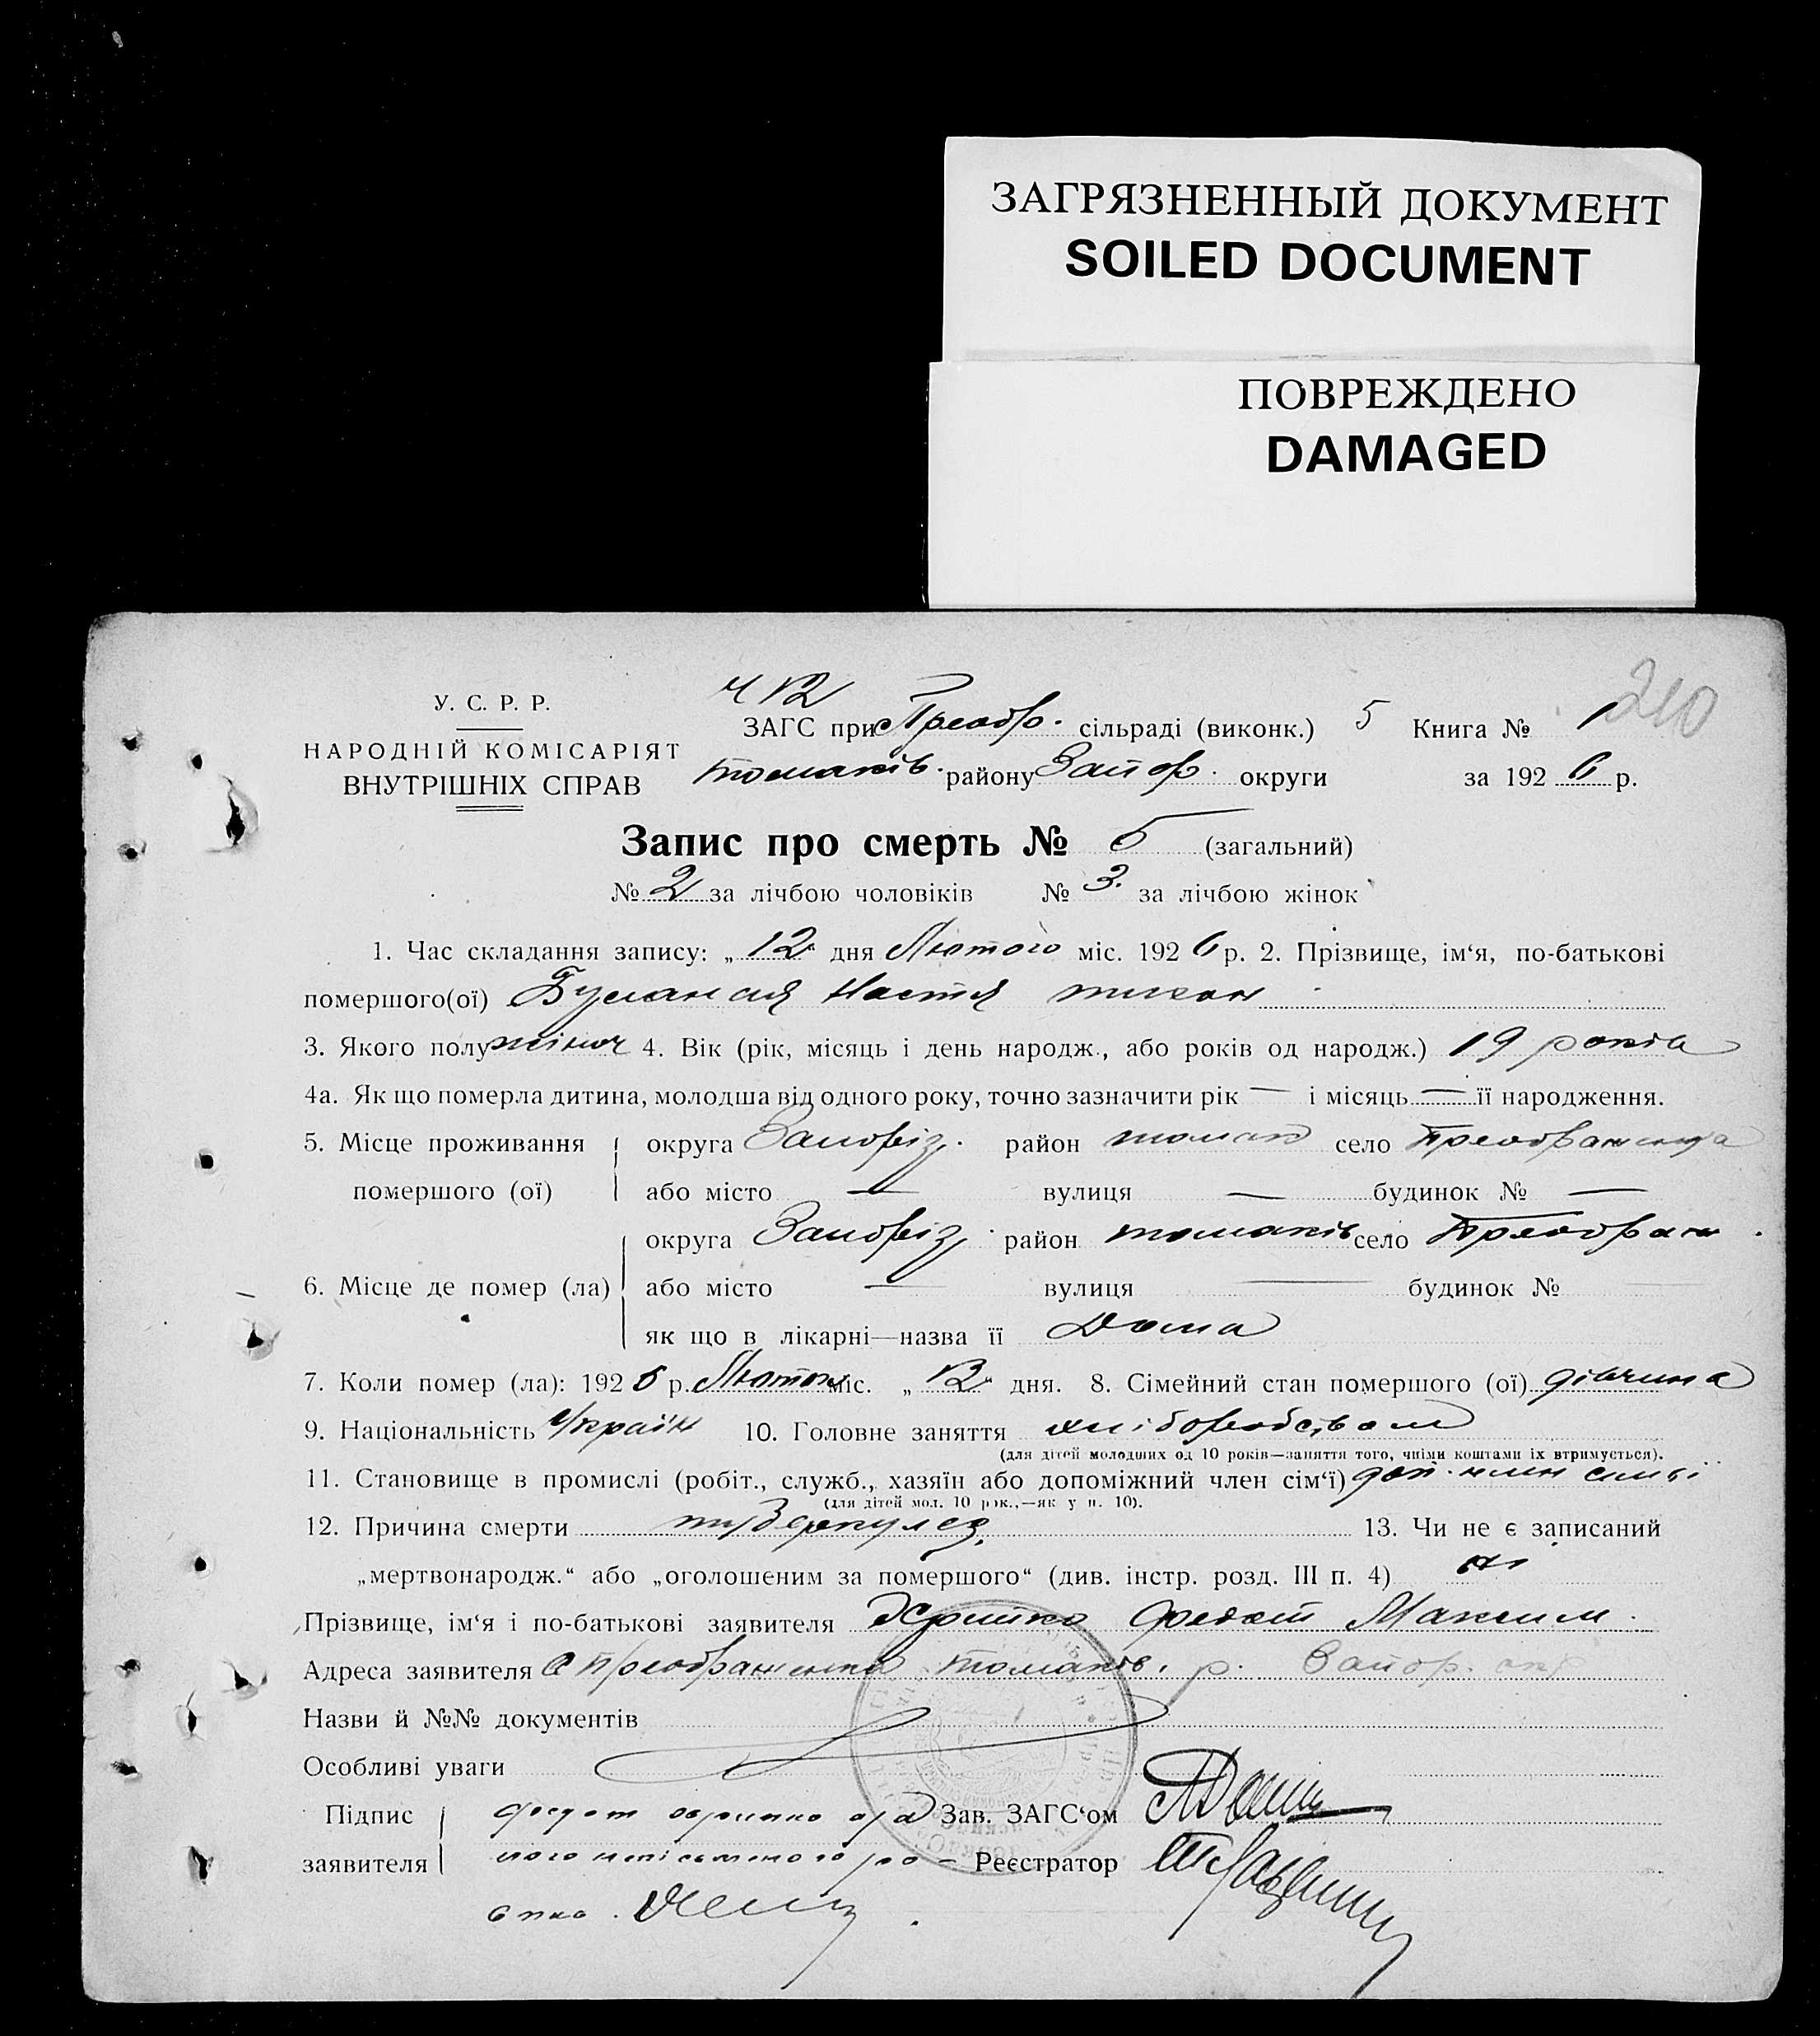 ЗАГРЯЗНЕННЫЙ ДОКУМЕНТ
SOILED DOCUMENT
ПОВРЕЖДЕНО
DAMAGED
210
Ч 12
У. С. Р. Р.
ЗАГС при Преобр. сільраді (виконк.) 5 Книга № 1
НАРОДНІЙ КОМІСАРІЯТ
ВНУТРІШНІХ СПРАВ
томаків. району Запор. округи за 192 6 р.
Запис про смерть № 5 (загальний)
№ 2 за лічбою чоловіків № 3. за лічбою жінок
1. Час складання запису: „ 12 " дня Лютого міс. 192 6 р. 2. Прізвище, ім‘я, по-батькові
помершого(ої) Буланая Настя тихон
3. Якого полу жіноч 4. Вік (рік, місяць і день народж., або років од народж.) 19 років
4а. Як що померла дитина, молодша від одного року, точно зазначити рік — і місяць — її народження.
5. Місце проживання округа Запоріз. район томак село Преображенка
помершого (ої) або місто — вулиця — будинок № —
округа Запоріз. район томаків село Преображ.
6. Місце де помер (ла) або місто — вулиця — будинок №
як що в лікарні—назва її Дома
7. Коли помер (ла): 192 6 р. Лютого міс. „ 12 " дня. 8. Сімейний стан помершого (ої) дівчина
9. Національність Україн 10. Головне заняття хліборобством
(для дітей молодших од 10 років—заняття того, чиїми коштами їх втримується).
11. Становище в промислі (робіт., служб., хазяїн або допоміжний член сім‘ї) доп. член сімьї
(для дітей мол. 10 рок.,—як у п. 10).
12. Причина смерти туберкулез. 13. Чи не є записаний
„мертвонародж.“ або „оголошеним за помершого“ (див. інстр. розд. III п. 4) ні
Прізвище, ім‘я і по-батькові заявителя Федот Максим.
Адреса заявителя С Преображенка томаків. р. Запор. окр
Назви й №№ документів
Особливі уваги
Підпис Федот Зав. ЗАГС‘ом
заявителя Реєстратор